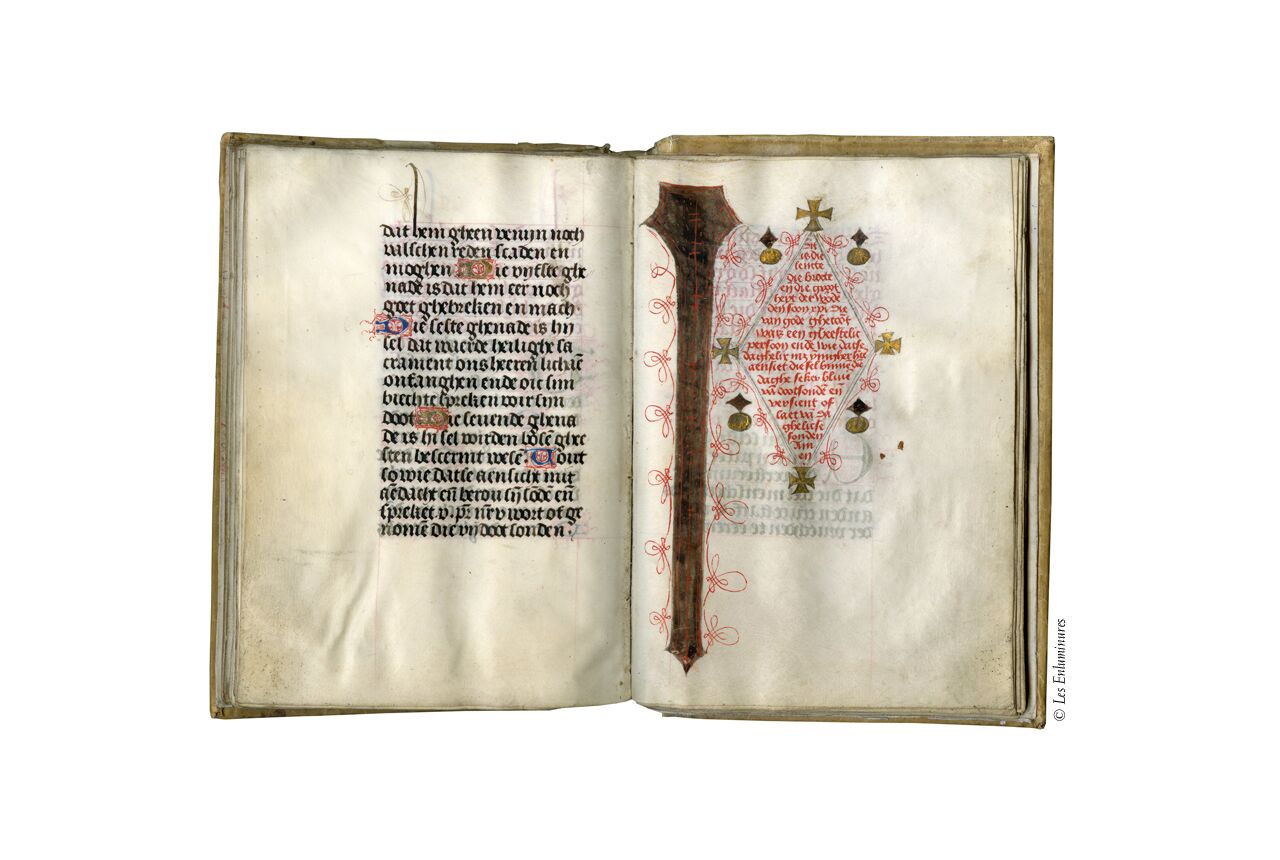 dat hem gheen venijn noch
valschen reden scaden en
moghen Die vijfste ghe
nade is dat hem eer noch
goet ghebreken en mach
Die seste ghenade is hij
sel dat waerde heilighe sa
crament ons heeren lichaē
onfanghen ende oic sijn
biechte spreken voir sijn
doot Die seuende ghena
de is hi sel voirden bosē ghee
sten bescermt wesē. Vout
so wie datse aensicht mit
aēdacht eñ berou sij sōdē eñ
spreket v. pr̄ nr̄ v wort of ge
nomē die vij doot sonden.
Dit
is die
lencte
die brede
en die groot
heyt der wōde
den soon
van gode ghetoöt
was een gheestelic
persoon ende wie datse
daghelix
aensiet die sel binnē dē
daghe seker bliue
vā dootsondē eñ
versient of
laet vā da
ghelicse
sonden
Am
en
© Les Enluminures